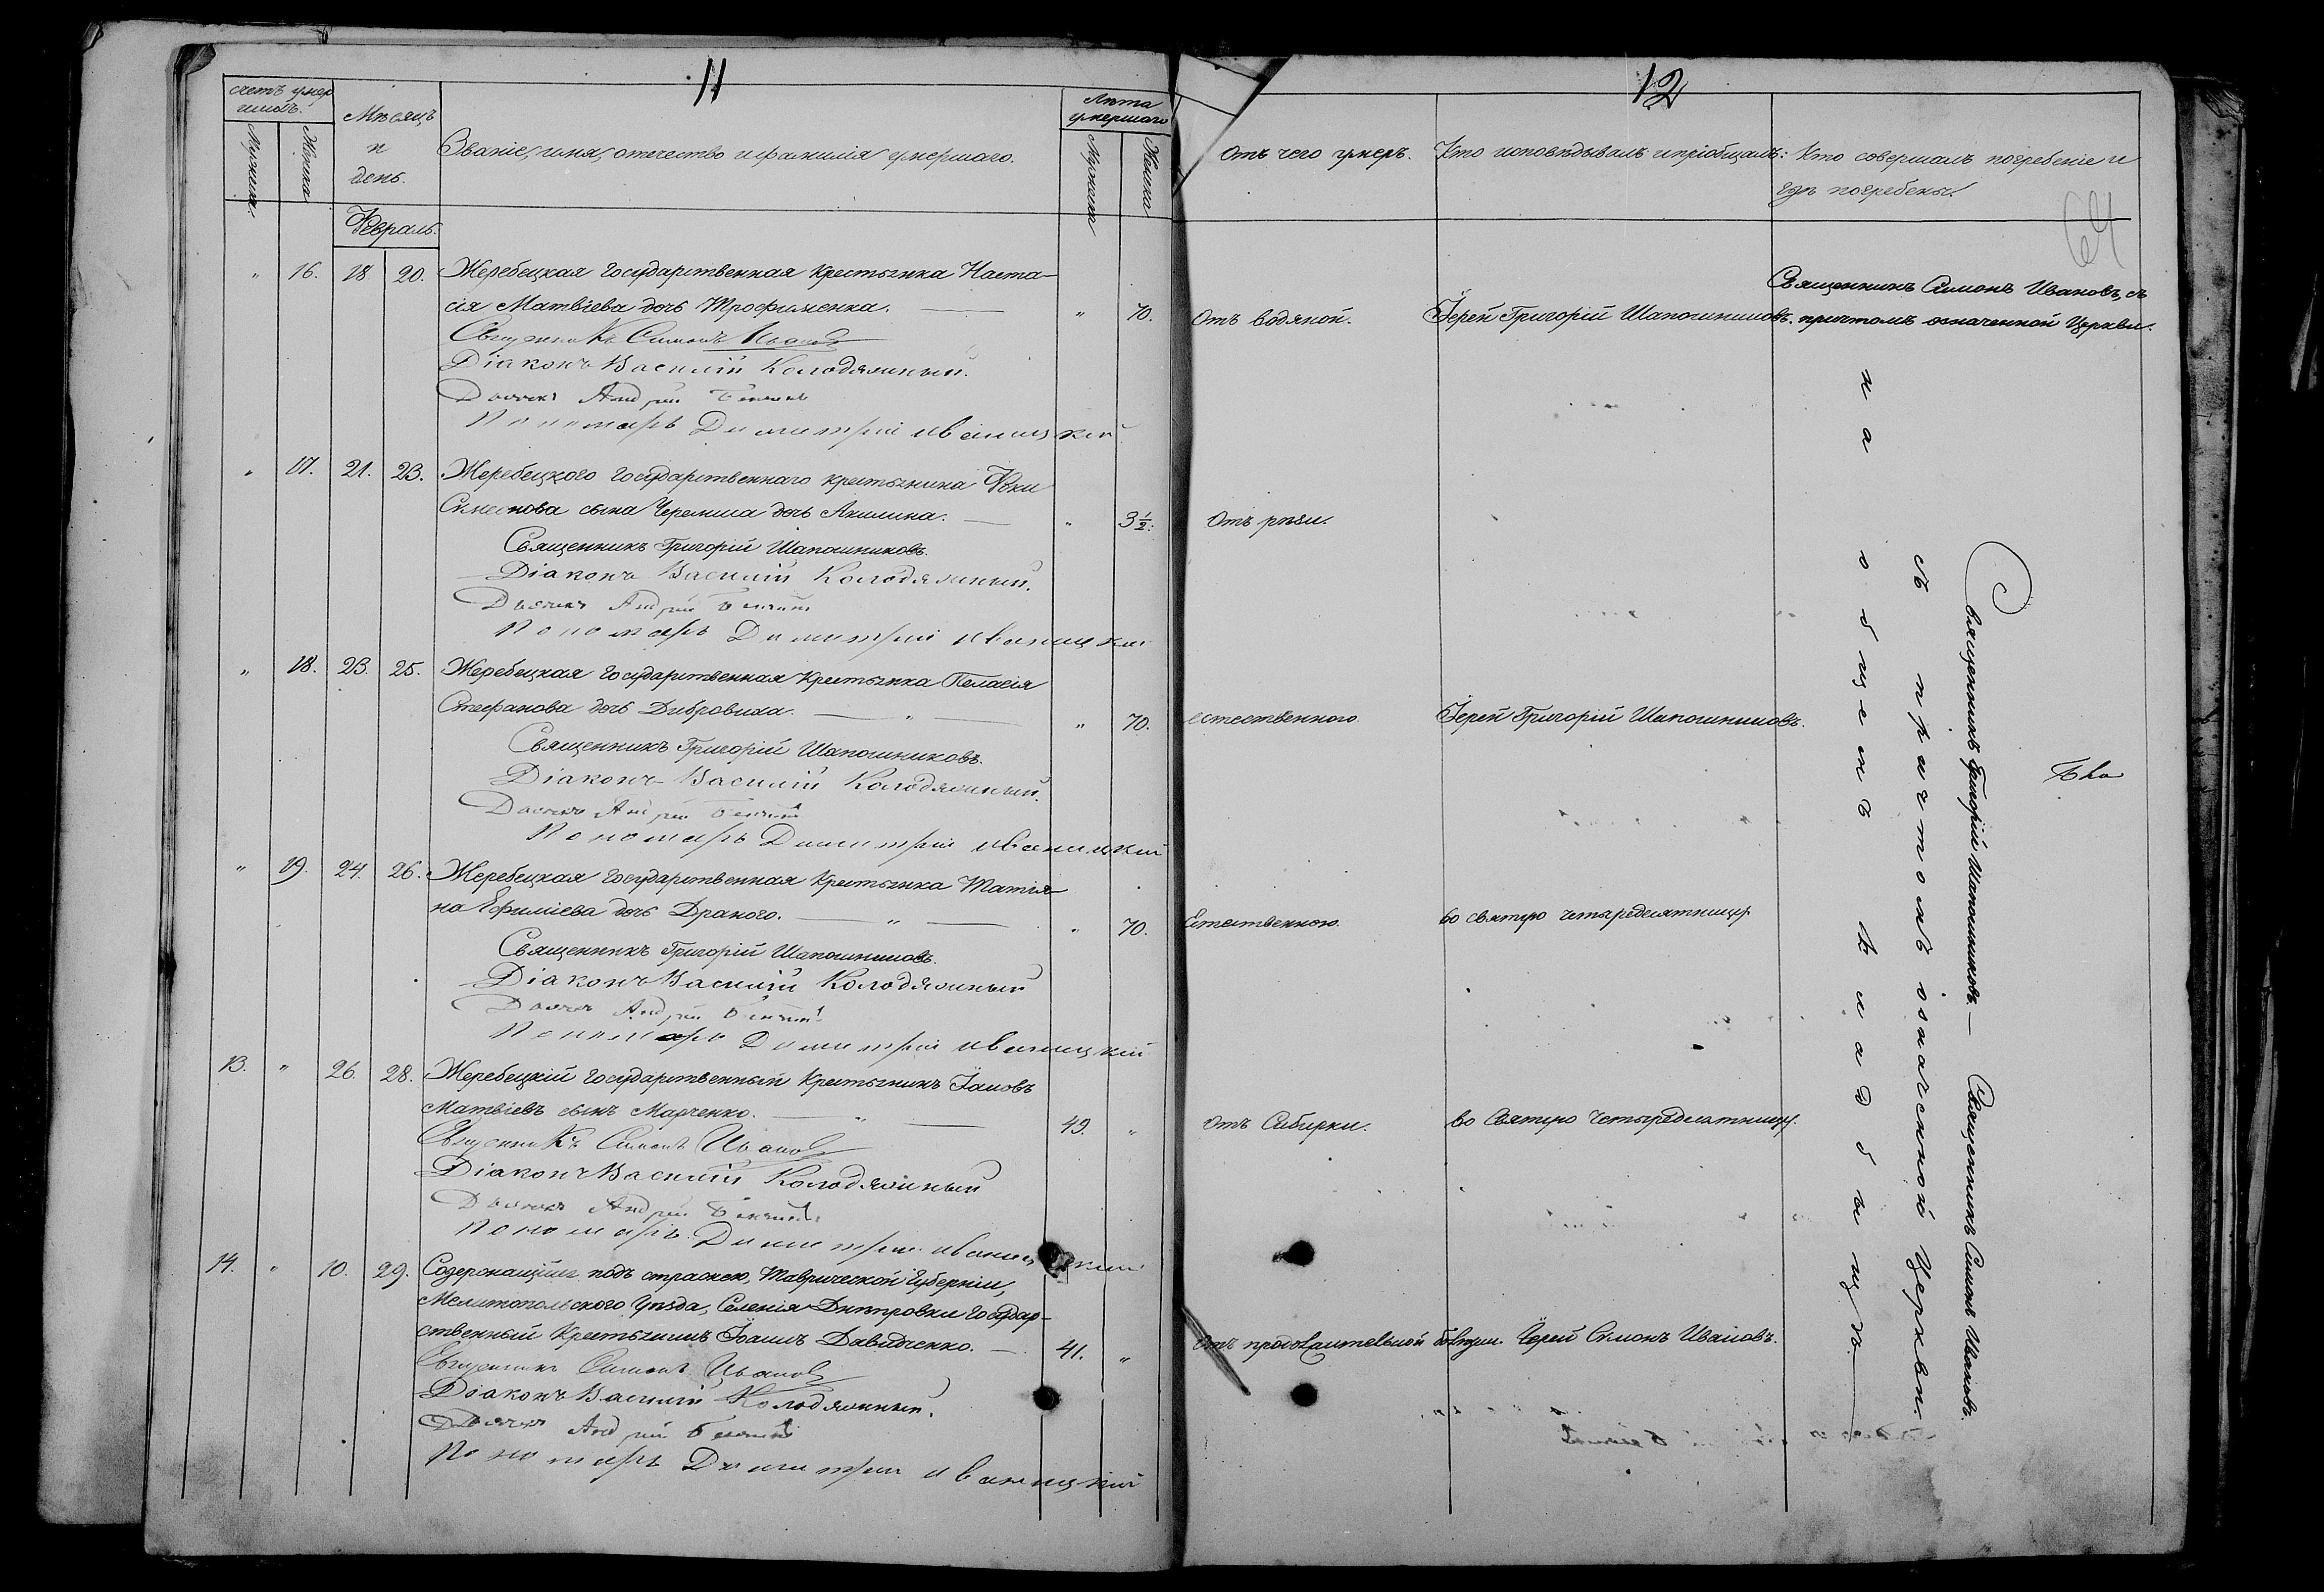 11
счетъ умер
шихъ.
Мужика.
Женска
Мѣсяцъ
и
день.
Званіе, имя, отчество и фамилія умершаго.
Лѣта
умершаго
Мужика
Женска
Февраль.
" 16. 18 20. Жеребецкая государственная крестьянка Наста-
сія Матвіева дочь Трофименка. " 70.
Священникъ Симонъ Ивановъ
Діаконъ Василій Колодяжный.
Дьячекъ Андрей
Пономарь Димитрій Иваницкій
" 17. 21. 23. Жеребецкого государственнаго крестьянина Фоки
Симеонова сына Черемиса дочь Акилина. " 3½.
Священникъ Григорій Шапошниковъ.
Діаконъ Василій Колодяжный.
Дьячекъ Андрей
Пономарь Димитрій Иваницкій
" 18. 23. 25. Жеребецкая государственная крестьянка Пелагія
Стефанова дочь Дибровиха. " " 70.
Священникъ Григорій Шапошниковъ.
Діаконъ Василій Колодяжный.
Дьячекъ Андрей
Пономарь Димитрій Иваницкій
" 19. 24. 26. Жеребецкая государственная крестьянка Татія-
на Ефиміева дочь Драного. " " 70.
Священникъ Григорій Шапошниковъ.
Діаконъ Василій Колодяжный
Дьячекъ Андрей
Пономарь Димитрій Иваницкій
13. " 26. 28. Жеребецкій государственный крестьянинъ Іаковъ
Матвіевъ сынъ Марченко. " 49. "
Священникъ Симонъ Ивановъ
Діаконъ Василій Колодяжный
Дьячекъ Андрей
Пономарь Димитрій Иваницкій
14. " 10. 29. Содержащійся подъ стражею, Таврической Губерніи,
Мелитопольского Уѣзда, Селенія Днѣпровки Государ-
ственный Крестьянинъ Іоаннъ Давидченко. 41. "
Священникъ Симонъ Ивановъ
Діаконъ Василій Колодяжный.
Дьячекъ Андрей
Пономарь Димитрій Иваницкій
12
64
Отъ чего умеръ.
Кто исповѣдывалъ и пріобщалъ:
Кто совершалъ погребеніе и
гдѣ погребены.
Отъ водяной.
Іерей Григорій Шапошниковъ.
Священникъ Симонъ Ивановъ, съ
причтомъ означенной Церкви.
Отъ рѣзи.
естественного.
Іерей Григорій Шапошниковъ.
Естественною.
во святую четыредесятницу
отъ Сибирки.
во Святую Четыредесятницу.
Отъ продолжительной болѣзни.
Іерей Симонъ Ивановъ.
на общемъ кладбищѣ.
съ причтомъ означенной Церкви.
Священникъ Григорій Шапошниковъ. — Священникъ Симонъ Ивановъ.